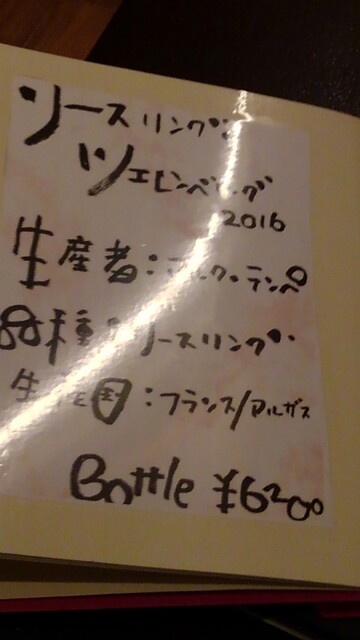 リースリング
ツェレンベルグ
2016
生産者：マルク・テンペ
品種：リースリング
生産国：フランス/アルザス
Bottle ¥6200